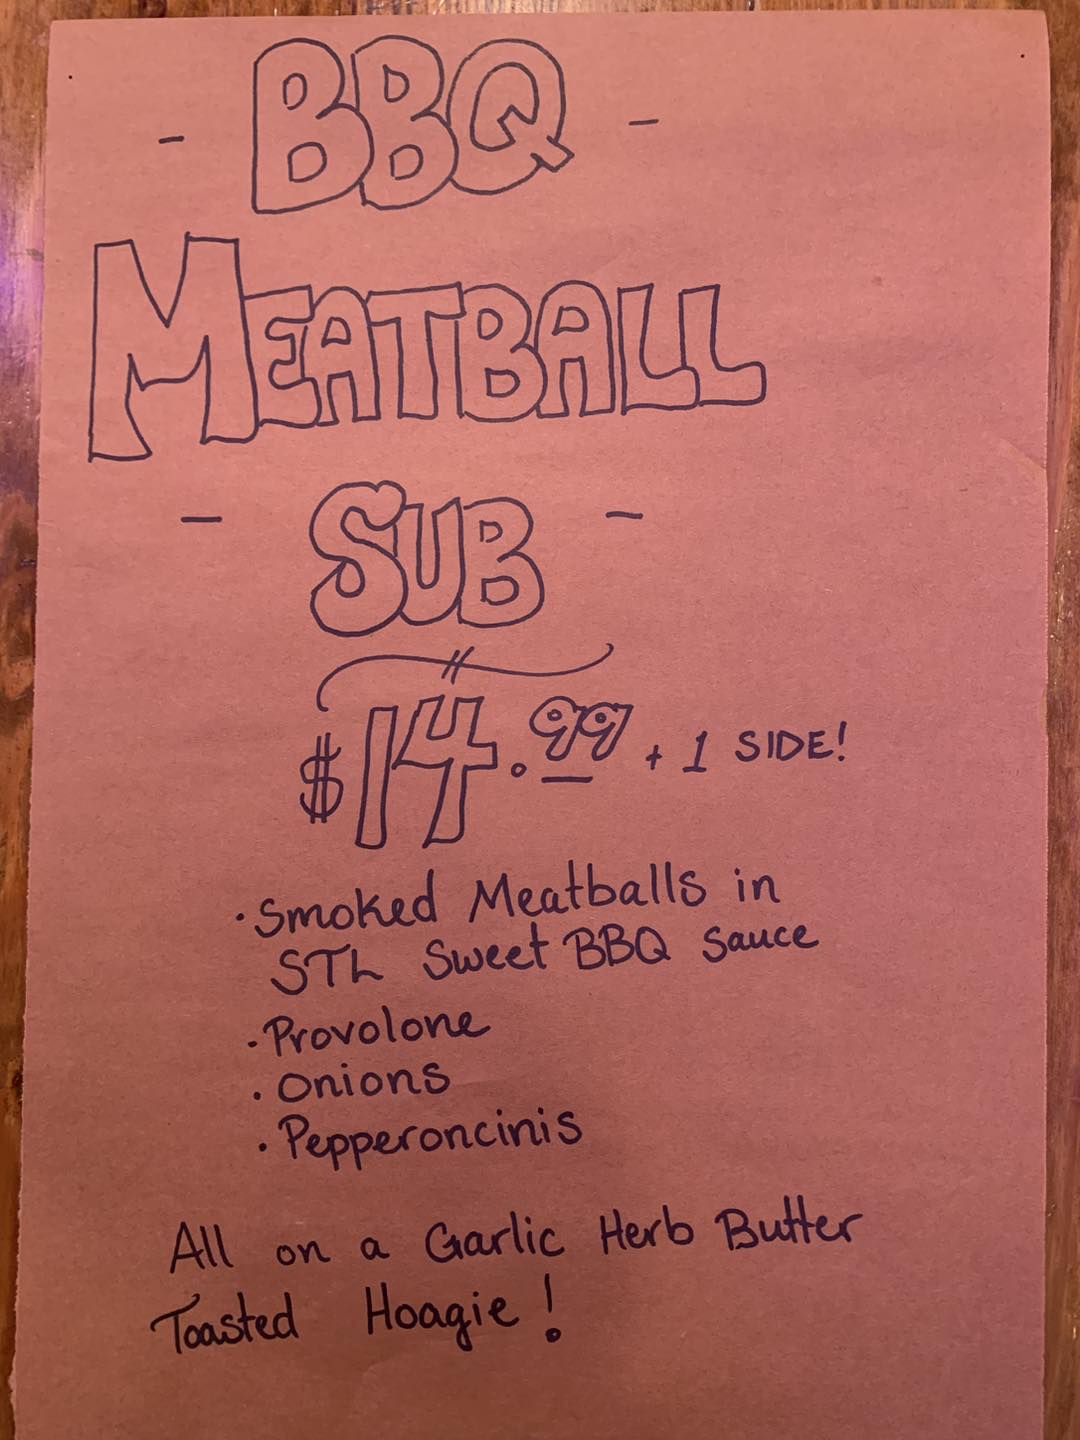 - BBQ -
MEATBALL
- SUB -
$14.99 + 1 SIDE!
· Smoked Meatballs in
STL Sweet BBQ Sauce
· Provolone
· Onions
· Pepperoncinis
All on a Garlic Herb Butter
Toasted Hoagie!